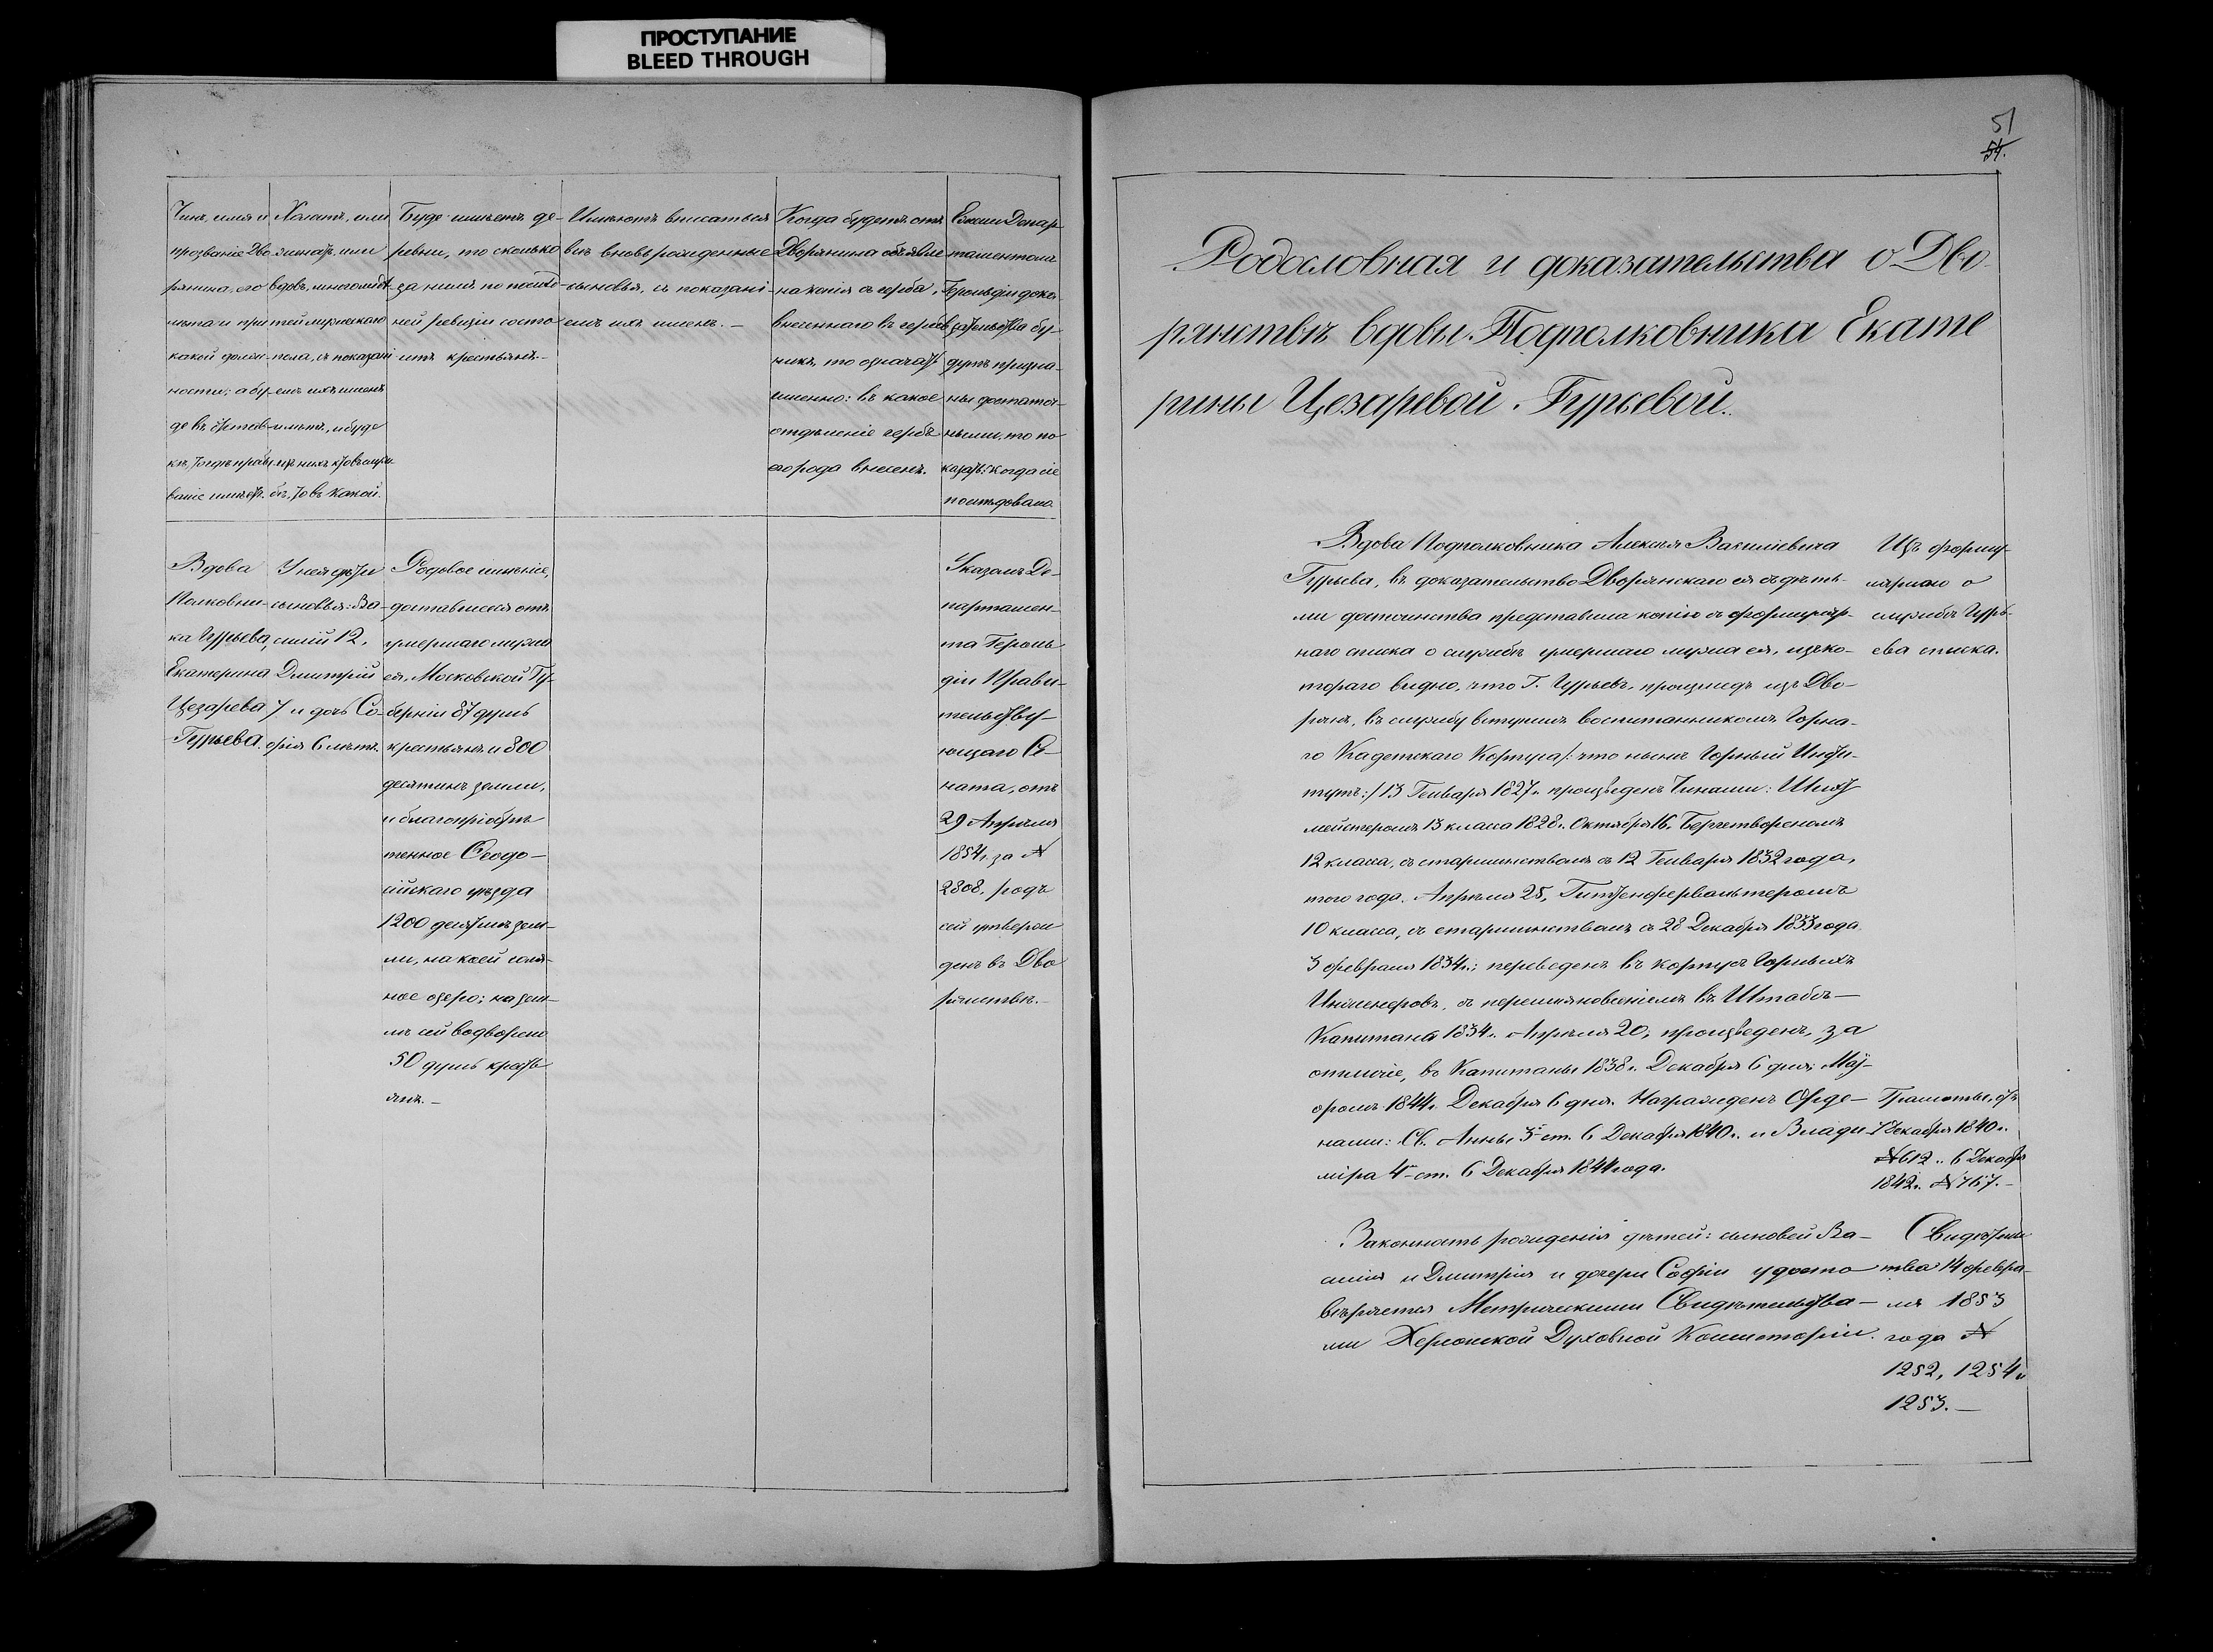 ПРОСТУПАНИЕ
BLEED THROUGH
Чинъ, имя и
прозваніе Дво-
рянина, его
лѣта и при
какой долж-
ности; а бу-
де въ отстав-
кѣ, то гдѣ пребы-
ваніе имѣетъ.
Холостъ, или
женатъ, или
вдовъ, много ли дѣ-
тей мужескаго
пола, съ показані
емъ ихъ именъ
и лѣтъ, и буде
изъ нихъ кто въ служ
бѣ, то въ какой.
Буде имѣетъ де-
ревни, то сколько
за нимъ по послѣд-
ней ревизіи состо
итъ крестьянъ.-
Имѣютъ вписаться
всѣ вновьрожденные
сыновья, съ показані-
емъ ихъ именъ.-
Когда будетъ отъ
Дворянина объявле
на копія съ герба,
внесеннаго въ гербов
никъ, то означать
именно: въ какое
отдѣленіе гербъ
его рода внесенъ.
Ежели Депар-
таментомъ
Герольдіи дока-
зательства бу-
дутъ призна-
ны достаточ-
ными, то по
казать: когда сіе
послѣдовало
Вдова
Полковни-
ка Гурьева,
Екатерина
Цезарева
Гурьева.
У нея дѣти
сыновья: Ва-
силій 12,
Дмитрій
7 и дочь Со-
фія 6 лѣтъ.
Родовое имѣніе,
доставшееся отъ
умершаго мужа
ея, Московской Гу-
берніи 87 душъ
крестьянъ и 800
десятинъ земли,
и благопріобрѣ
тенное Ѳеодо-
сійскаго уѣзда
1200 десятинъ зем-
ли, на коей соля-
ное озеро; на зем-
лѣ сей водворено
50 душъ кресть
янъ.-
Указомъ Де-
партамен-
та Героль
діи Прави-
тельству-
ющаго Се-
ната, отъ
29 Апрѣля
1854 г. за №
2808, родъ
сей утверж
денъ въ Дво
рянствѣ.-
51
54.
Родословная и доказательства о Дво-
рянствѣ вдовы Подполковника Екате
рины Цезаревой Гурьевой.
Вдова Подполковника Алексѣя Васильевича
Гурьева, въ доказательство Дворянскаго ея съ дѣть-
ми достоинства представила копію съ формуляр-
наго списка о службѣ умершаго мужа ея, изъ ко-
тораго видно, что Г. Гурьевъ, произшедъ изъ Дво-
рянъ, въ службу вступилъ воспитанникомъ Горна-
го Кадетскаго Корпуса /: что нынѣ Горный Инсти-
тутъ:/ 13 Генваря 1827 г. произведенъ Чинами: Шихт
мейстеромъ 13 класса 1828 г. Октября 16, Бергешвореномъ
12 класса, съ старшинствомъ съ 12 Генваря 1832 года,
того года Апрѣля 25, Гиттенфервальтеромъ
10 класса, съ старшинствомъ съ 28 Декабря 1833 года
3 февраля 1834 г.; переведенъ въ корпусъ Горныхъ
Инженеровъ, съ переименованіемъ въ Штабсъ-
Капитана 1834 г. Апрѣля 20; произведенъ, за
отличіе, въ Капитаны 1838 г. Декабря 6 дня; Маі-
оромъ 1844 г. Декабря 6 дня. Награжденъ Орде-
нами: Св. Анны 3й ст. 6 Декабря 1840 г. и Влади
міра 4й ст. 6 Декабря 1844 года.
Изъ форму-
лярнаго о
службѣ Гурь-
ева списка.
Грамоты, отъ
7 Декабря 1840 г.
№ 612 .. 6 Декабря
1842 г. № 767.-
Законность рожденія дѣтей: сыновей Ва-
силія и Дмитрія и дочери Софіи удосто
вѣряется Метрическими Свидѣтельства-
ми Херсонской Духовной Консисторіи.
Свидѣтель
тва 14 февра-
ля 1853
года №
1252, 1254 и
1253.-